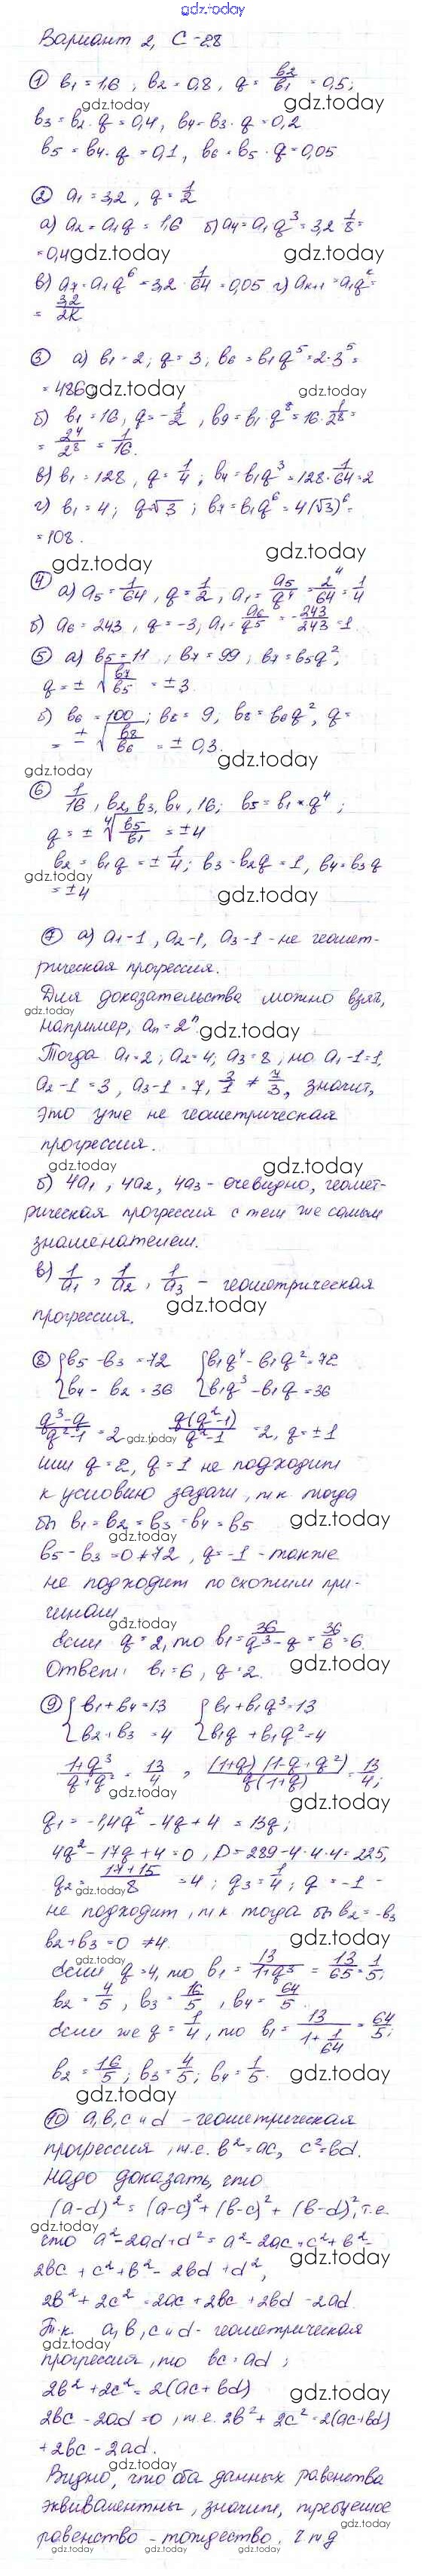 gdz.today
Вариант 2, С-28
① b₁ = 1,6 , b₂ = 0,8, q = b₂/b₁ = 0,5;
gdz.today gdz.today
b₃ = b₂ · q = 0,4, b₄ = b₃ · q = 0,2
b₅ = b₄ · q = 0,1, b₆ = b₅ · q = 0,05
② a₁ = 3,2 , q = 1/2
а) a₂ = a₁q = 1,6 б) a₄ = a₁q³ = 3,2 · 1/8 =
= 0,4 gdz.today gdz.today
в) a₇ = a₁q⁶ = 3,2 · 1/64 = 0,05 г) aₖ₊₁ = a₁qᵏ =
= 3,2/2ᵏ
③ а) b₁ = 2; q = 3; b₆ = b₁q⁵ = 2·3⁵ =
= 486 gdz.today gdz.today
б) b₁ = 16, q = -1/2, b₉ = b₁q⁸ = 16 · 1/2⁸ =
= 2⁴/2⁸ = 1/16.
в) b₁ = 128, q = 1/4; b₄ = b₁q³ = 128 · 1/64 = 2
г) b₁ = 4; q = √3; b₇ = b₁q⁶ = 4(√3)⁶ =
= 108.
gdz.today gdz.today
④ а) a₅ = 1/64, q = 1/2, a₁ = a₅/q⁴ = 2⁴/64 = 1/4
б) a₆ = 243, q = -3; a₁ = a₆/q⁵ = -243/243 = 1.
⑤ а) b₅ = 11 ; b₇ = 99; b₇ = b₅q²,
q = ± √(b₇/b₅) = ±3.
б) b₆ = 100; b₈ = 9, b₈ = b₆q², q =
= ± √(b₈/b₆) = ± 0,3.
gdz.today
gdz.today
⑥ 1/16, b₂, b₃, b₄, 16; b₅ = b₁ × q⁴;
q = ± ⁴√(b₅/b₁) = ±4
b₂ = b₁q = ±1/4; b₃ = b₂q = 1, b₄ = b₃q
gdz.today
= ±4 gdz.today
⑦ а) a₁-1, a₂-1, a₃-1 - не геомет-
рическая прогрессия.
Для доказательства можно взять,
gdz.today
например, aₙ = 2ⁿ gdz.today
Тогда a₁ = 2; a₂ = 4; a₃ = 8, но a₁-1 = 1,
a₂-1 = 3, a₃-1 = 7, 3/1 ≠ 7/3, значит,
это уже не геометрическая
прогрессия.
gdz.today gdz.today
б) 4a₁, 4a₂, 4a₃ - очевидно, геомет-
рическая прогрессия с тем же самым
знаменателем.
в) 1/a₁, 1/a₂, 1/a₃ - геометрическая
прогрессия. gdz.today
⑧ { b₅ - b₃ = 72 { b₁q⁴ - b₁q² = 72
{ b₄ - b₂ = 36 { b₁q³ - b₁q = 36
q³-q/q²-1 = 2 gdz.today , q(q²-1)/q²-1 = 2, q = ±1
или q = 2, q = 1 не подходит
к условию задачи, т.к тогда
бы b₁ = b₂ = b₃ = b₄ = b₅ gdz.today
gdz.today
b₅ - b₃ = 0 ≠ 72, q = -1 - также
не подходит по схожим при-
чинам.
gdz.today
Если q = 2, то b₁ = 36/q³-q = 36/6 = 6.
Ответ: b₁ = 6, q = 2. gdz.today
⑨ { b₁ + b₄ = 13 { b₁ + b₁q³ = 13
{ b₂ + b₃ = 4 { b₁q + b₁q² = 4
1+q³/q+q² = 13/4 , (1+q)(1-q+q²)/q(1+q) = 13/4;
gdz.today gdz.today
q₁ = -1, 4q² - 4q + 4 = 13q;
4q² - 17q + 4 = 0, D = 289 - 4·4·4 = 225,
q₂ = 17+15/8 = 4; q₃ = 1/4; q = -1 -
gdz.today
не подходит, т.к тогда бы b₂ = -b₃
b₂ + b₃ = 0 ≠ 4. gdz.today
gdz.today
Если q = 4, то b₁ = 13/1+q³ = 13/65 = 1/5;
b₂ = 4/5, b₃ = 16/5, b₄ = 64/5.
Если же q = 1/4, то b₁ = 13/1+1/64 = 64/5;
b₂ = 16/5; b₃ = 4/5; b₄ = 1/5. gdz.today
gdz.today
⑩ a, b, c и d - геометрическая
прогрессия, т.е. b² = ac, c² = bd.
Надо доказать, что
(a-d)² = (a-c)² + (b-c)² + (b-d)², т.е.
gdz.today
что a² - 2ad + d² = a² - 2ac + c² + b² -
2bc + c² + b² - 2bd + d², gdz.today
2b² + 2c² = 2ac + 2bc + 2bd - 2ad.
Т.к. a, b, c и d - геометрическая
gdz.today
прогрессия, то bc = ad;
2b² + 2c² = 2(ac + bd) gdz.today
2bc - 2ad = 0, т.е. 2b² + 2c² = 2(ac + bd)
+ 2bc - 2ad.
gdz.today
Видно, что оба данных равенства
эквивалентны, значит, требуемое
gdz.today
равенство - тождество. ч т д
gdz.today gdz.today gdz.today gdz.today